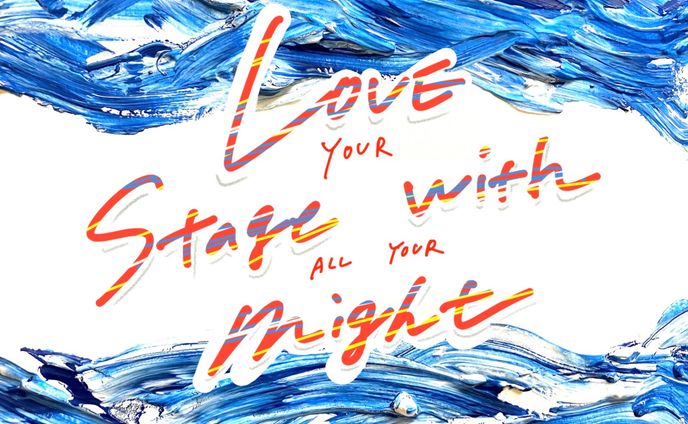 LOVE
YOUR
Stage with
ALL YOUR
might